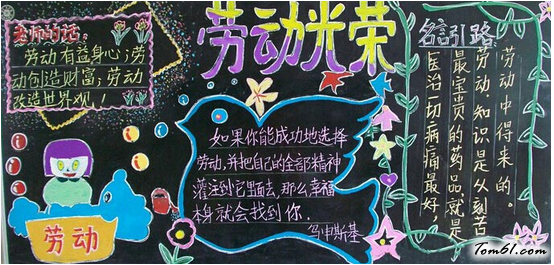 劳动光荣
老师的话:
劳动有益身心；劳
动创造财富；劳动
改造世界观！
劳动
如果你能成功地选择
劳动,并把自己的全部精神
灌注到它里面去,那么幸福
本身就会找到你.
乌申斯基
名言引路
医治一切病痛最好
最宝贵的药品就是
劳动知识是从刻苦
劳动中得来的。
Tom61.com